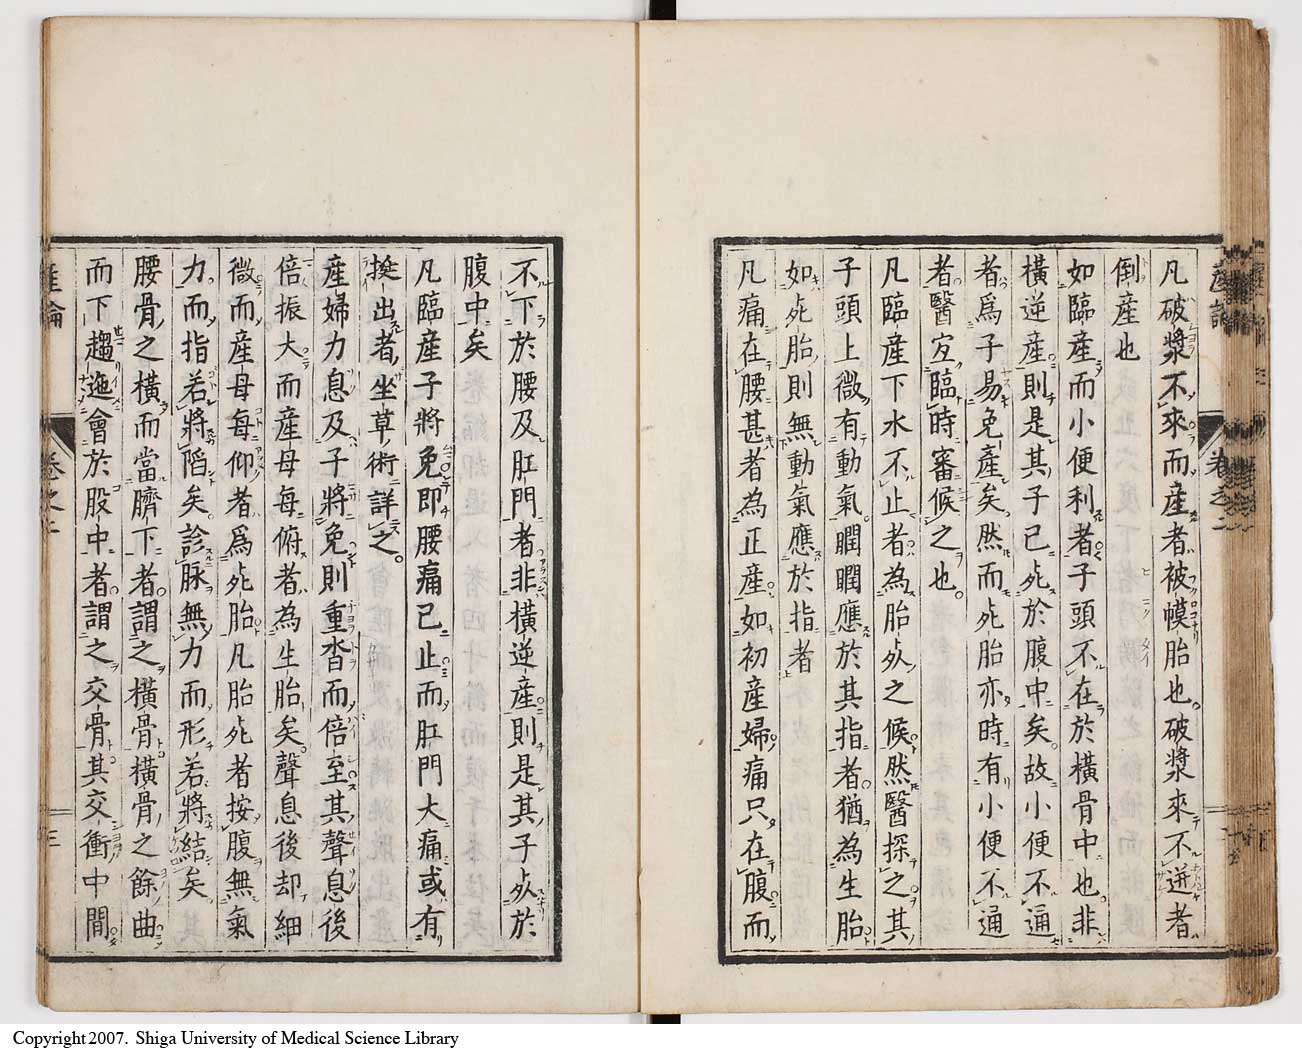 凡破漿不來而產者被幙胎也破漿來不迸者
倒產也
如臨產而小便利者子頭不在於橫骨中也非
橫逆產則是其子已死於腹中矣故小便不通
者爲子易免產矣然而死胎亦時有小便不通
者醫宜臨時審候之也
凡臨產下水不止者為胎死之候然醫探之其
子頭上微有動氣瞤瞤應於其指者猶為生胎
如死胎則無動氣應於指者
凡痛在腰甚者為正產如初產婦痛只在腹而
不下於腰及肛門者非橫逆產則是其子死於
腹中矣
凡臨產子將免即腰痛已止而肛門大痛或有
挺出者坐草術詳之
產婦力息及子將免則重沓而倍至其聲息後
倍振大而產母每俯者為生胎矣聲息後却細
微而產母每仰者爲死胎凡胎死者按腹無氣
力而指若將陷矣診脉無力而形若將結矣
腰骨之橫而當臍下者謂之橫骨橫骨之餘曲
而下趨迤會於股中者謂之交骨其交衝中間
產論
卷之二
三
Copyright 2007. Shiga University of Medical Science Library